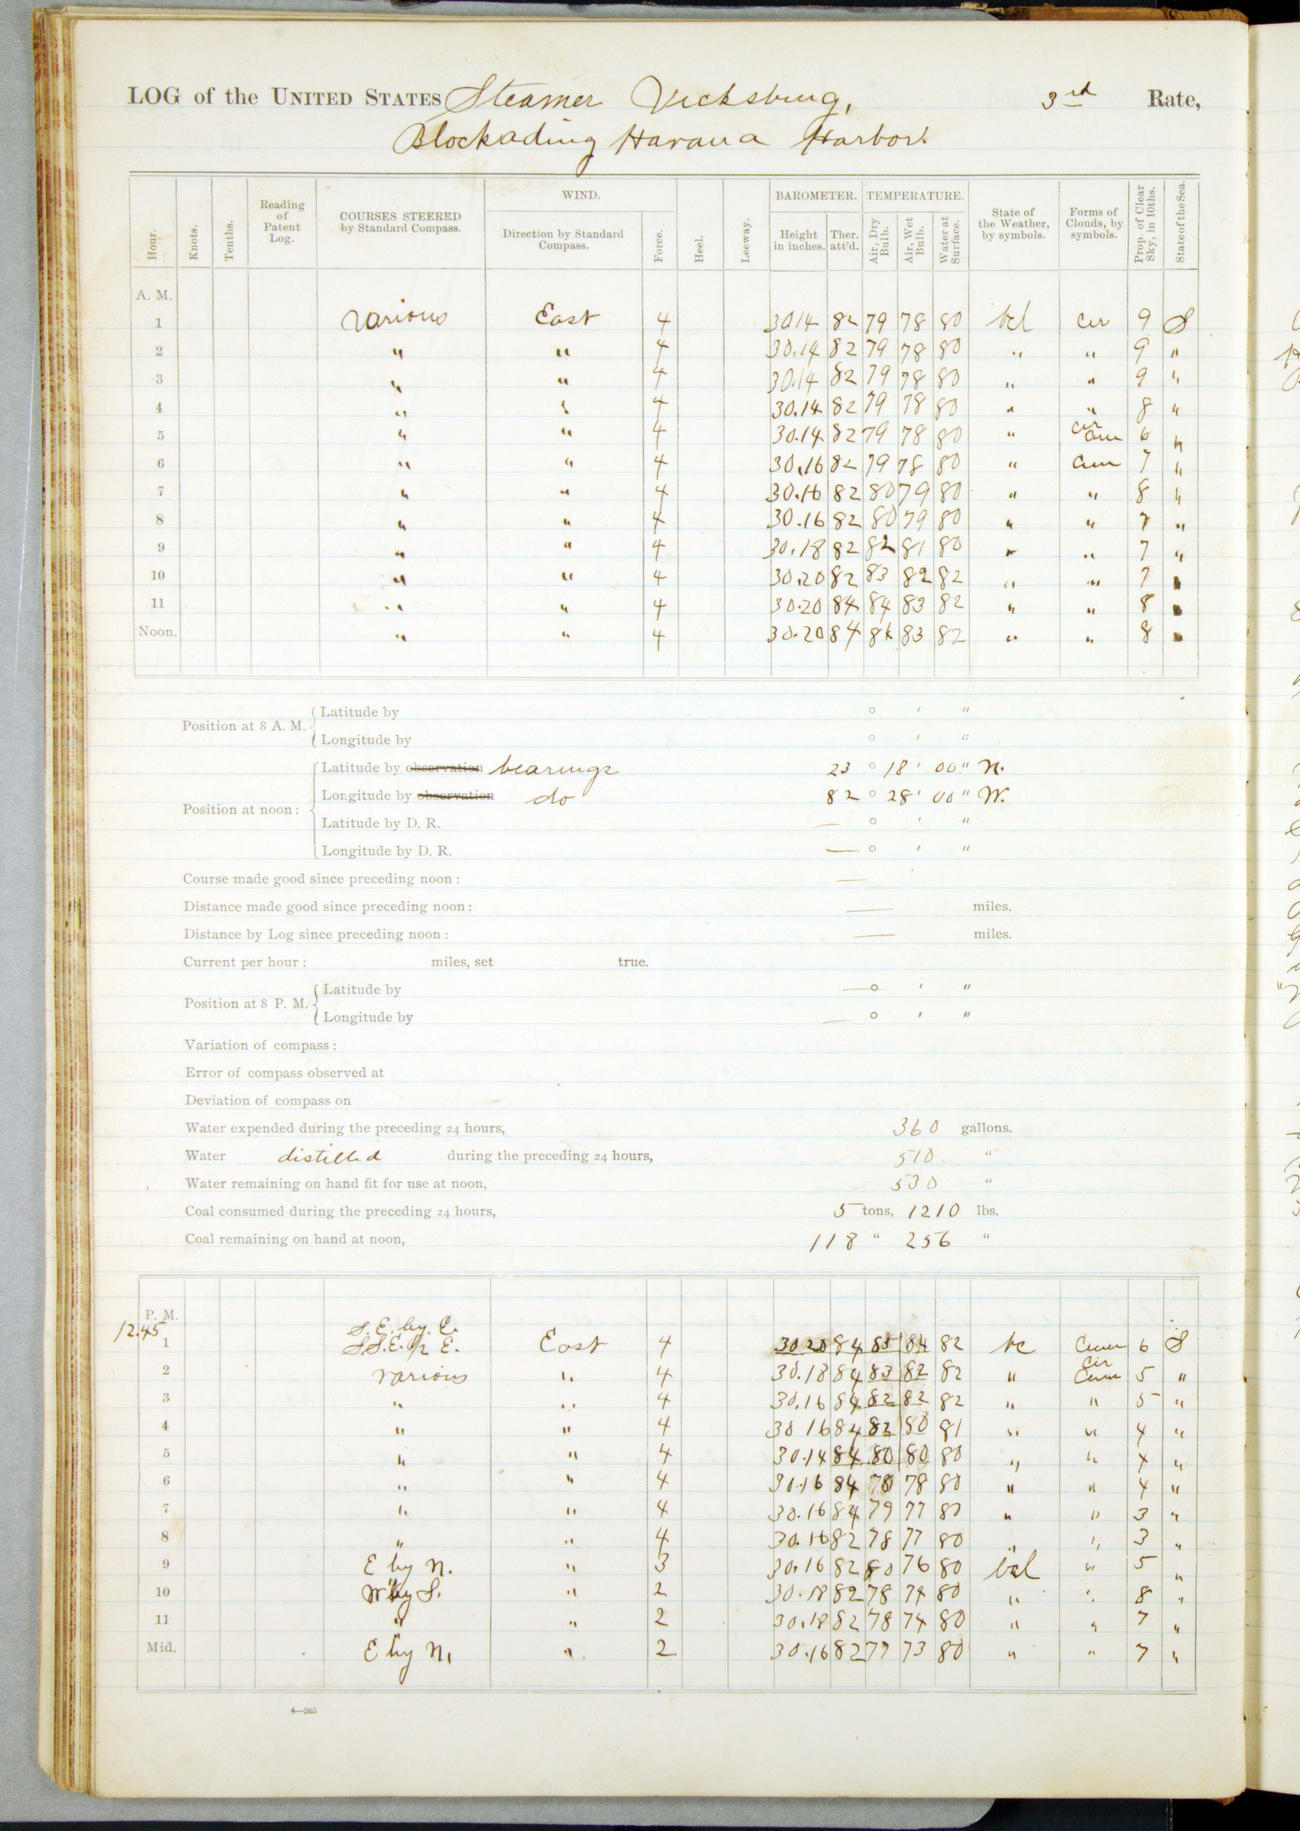 LOG of the UNITED STATES Steamer Vicksburg, 3rd Rate,
Blockading Havana Harbor.
Hour. Knots. Tenths. Reading of Patent Log. COURSES STEERED by Standard Compass. WIND. Direction by Standard Compass. Force. Heel. Leeway. BAROMETER. Height in inches. Ther. att'd. TEMPERATURE. Air, Dry Bulb. Air, Wet Bulb. Water at Surface. State of the Weather, by symbols. Forms of Clouds, by symbols. Prop. of Clear Sky, in 10ths. State of the Sea.
A. M.
1 Various East 4 30.14 82 79 78 80 bcl cir 9 S
2 " " 4 30.14 82 79 78 80 " " 9 "
3 " " 4 30.14 82 79 78 80 " " 9 "
4 " " 4 30.14 82 79 78 80 " " 8 "
5 " " 4 30.14 82 79 78 80 " cir cum 6 "
6 " " 4 30.16 82 79 78 80 " cum 7 "
7 " " 4 30.16 82 80 79 80 " " 8 "
8 " " 4 30.16 82 80 79 80 " " 7 "
9 " " 4 30.18 82 82 81 80 " " 7 "
10 " " 4 30.20 82 83 82 82 " " 7 "
11 " " 4 30.20 84 84 83 82 " " 8 "
Noon. " " 4 30.20 84 84 83 82 " " 8 "
Position at 8 A. M. Latitude by ° ' "
Longitude by ° ' "
Position at noon: Latitude by observation bearings 23 ° 18 ' 00 " N.
Longitude by observation do 82 ° 28 ' 00 " W.
Latitude by D. R. — ° ' "
Longitude by D. R. — ° ' "
Course made good since preceding noon: —
Distance made good since preceding noon: — miles.
Distance by Log since preceding noon: — miles.
Current per hour: miles, set true.
Position at 8 P. M. Latitude by — ° ' "
Longitude by — ° ' "
Variation of compass:
Error of compass observed at
Deviation of compass on
Water expended during the preceding 24 hours, 360 gallons.
Water distilled during the preceding 24 hours, 510 "
Water remaining on hand fit for use at noon, 530 "
Coal consumed during the preceding 24 hours, 5 tons, 1210 lbs.
Coal remaining on hand at noon, 118 " 256 "
P. M.
12.45 S. E. by E.
1 S.S.E. 1/2 E. East 4 30 20 84 85 84 82 bc Cum 6 S
2 various " 4 30.18 84 83 82 82 " cir Cum 5 "
3 " " 4 30.16 84 82 82 82 " " 5 "
4 " " 4 30 16 84 82 80 81 " " 4 "
5 " " 4 30.14 84 80 80 80 " " 4 "
6 " " 4 30.16 84 78 78 80 " " 4 "
7 " " 4 30.16 84 79 77 80 " " 3 "
8 " " 4 30.16 82 78 77 80 " " 3 "
9 E by N. " 3 30.16 82 80 76 80 bcl " 5 "
10 W by S. " 2 30.18 82 78 74 80 " " 8 "
11 " " 2 30.18 82 78 74 80 " " 7 "
Mid. E by N. " 2 30.16 82 77 73 80 " " 7 "
4—265